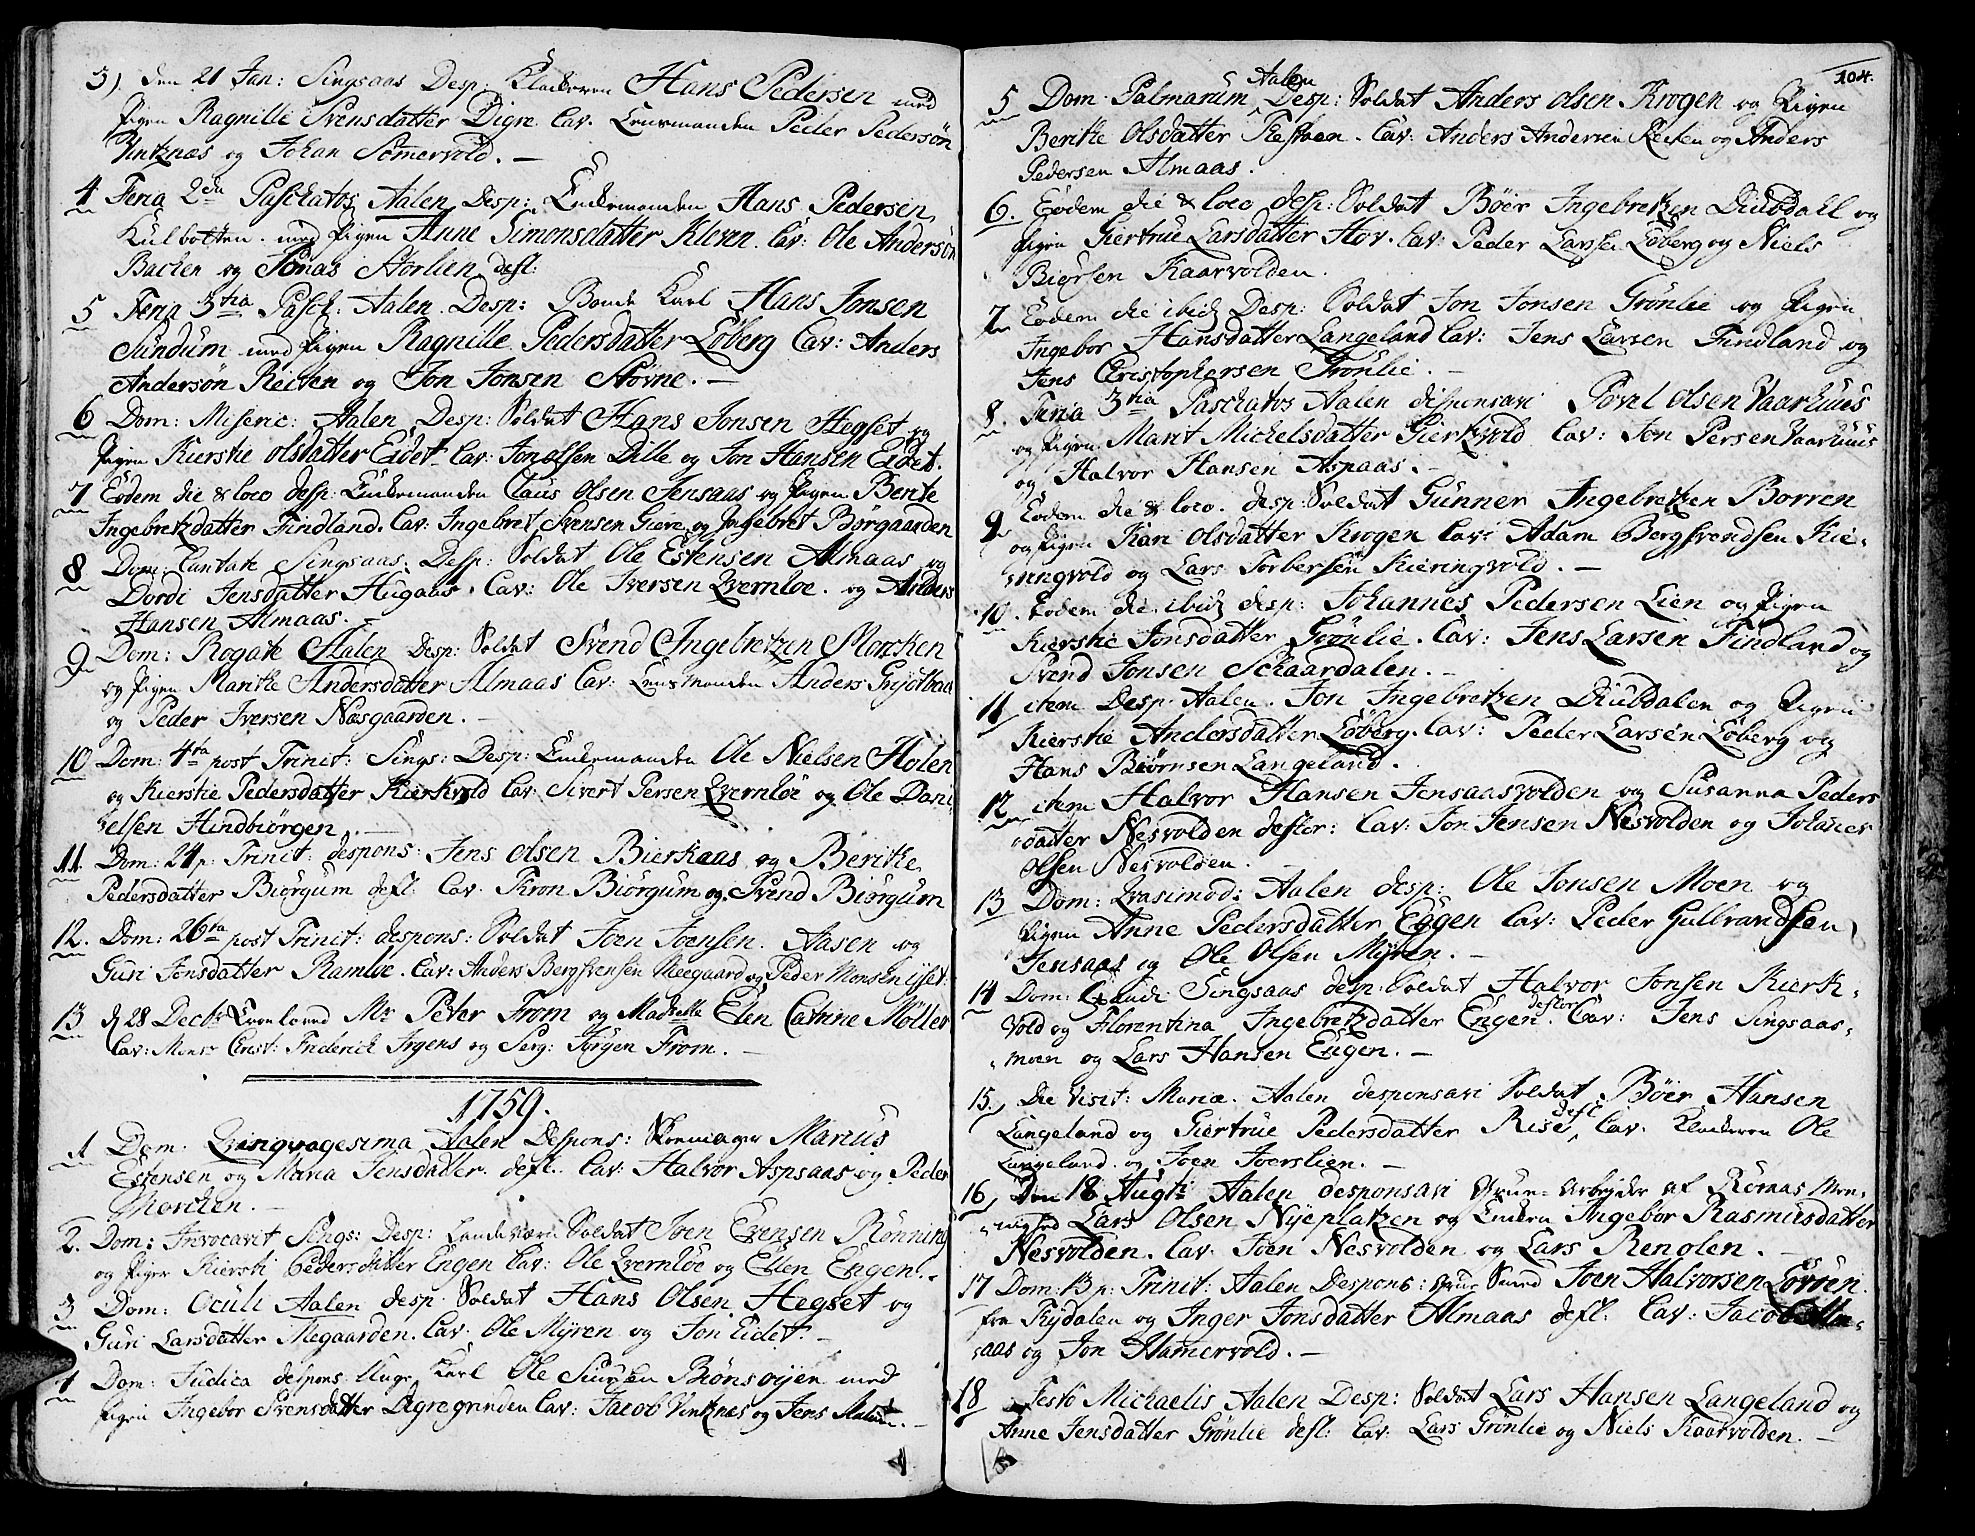 3) den 21 Jan: Singsaas Desp: Klockeren Hans Pedersen med
Pigen Ragnille Svensdatter Digre. Cav. Lensmanden Peder Pedersøn
Vintznas og Johan Somervold. —
4 Feria 2da Paschatos Aalen Desp: Enckemanden Hans Pedersen
Kulbotten. med Pigen Anne Simonsdatter Kleven. Cav: Ole Andersøn
Backen og Jonas Storlien defl:
5 Feria 3tia Pasch: Aalen. Desp: Bonde Karl Hans Jonsen
Sundum med Pigen Ragnille Pedersdatter Løberg Cav: Anders
Andersøn Reiten og Jon Jonsen Støvne. —
6 Dom: Miseric: Aalen Desp: Soldat Hans Jonsen Hegset og
Pigen Kierstie Olsdatter Eidet. Cav: Jon Olsen Dille og Jon Hansen Eidet.
7 Eodem die & loco desp: Enckemanden Claus Olsen Jensaas og Pigen Berite
Ingebretzdatter Findland. Cav: Ingebret Svensen Giøre og Ingebret Børgaarden
8 Dom: Cantate Singsaas: Desp: Soldat Ole Estensen Almaas og
Dordi Jensdatter Hugaas. Cav: Ole Iversen Qvernløe. og Anders
Hansen Almaas. —
9 Dom: Rogate Aalen Desp: Soldat Svend Ingebretzen Morcken
og Pigen Maritte Andersdatter Almaas Cav: Lensmanden Anders Grøtbach
og Peder Iversen Næsgaarden. —
10 Dom: 4ta post Trinit: Sings: Desp: Enckemanden Ole Nielsen Holen
og Kierstie Pedersdatter Kierkvold Cav: Sivert Persen Qvernløe og Ole Dani
elsen Hindbiørgen. —
11. Dom: 24 p: Trinit: despons. Jens Olsen Bierkaas og Beritke
Pedersdatter Biørgum defl. Cav. Tron Biørgum og Svend Biørgum
12. Dom: 26ta post Trinit: despons: Soldat Joen Joensen. Aasen og
Guri Jonsdatter Ramløe. Cav: Anders Bergsvensen Neegaard og Peder Monsen
13 d 28 Decbr Mr Peter From og Madselle Elen Catrine Møller
Cav: Monsr Ernst: Friderick Irgens og Serg: Jørgen From. —
1759.
1 Dom: Qvinqvagesima Aalen Despons: Skomager Marius
Estensen og Maria Jensdatter. defl. Cav. Halvor Aspaas og Peder
Morcken. —
2. Dom: Invocavit Sings: Desp: Landeværn Soldat Joen Evensen Rønning
og Pigen Kiersti Pedersdatter Engen Cav: Ole Qvernløe og Ellen Engen. —
3 Dom: Oculi Aalen desp. Soldat Hans Olsen Hegset og
Guri Larsdatter Megaarden. Cav. Ole Myren og Jon Eidet. —
4 Dom: Judica despons: Unge Karl Ole Siursen Bionsøyen med
Pigen Ingebor Svensdatter Digregrinden Cav: Jacob Vintznes og Jens —
104.
5 Dom. Palmarum Aalen Desp: Soldat Anders Olsen Krogen og Pigen
Beritke Olsdatter Cav: Anders Andersen Reiten og Anders
Pedersen Almaas.
6. Eodem die & loco desp: Soldat Bøer Ingebretzen Diubdall og
Pigen Giertrue Larsdatter Hov. Cav: Peder Larsen Løberg og Niels
Biørsen Kaarvolden.
7 Eodem die ibid. Desp: Soldat Jon Jonsen Grønlie og Pigen
Ingebor Hansdatter Langeland Cav: Jens Larsen Findland og
Jens Christophersen Grønlie. —
8. Feria 3tia Paschatos Aalen desponsari Povel Olsen Vaarhuus
og Pigen Marit Michelsdatter Gierkvold Cav: Jon Persen Vaarhuus
og Halvor Hansen Aspaas. —
9 Eodem die & loco. desp: Soldat Gunner Ingebretzen Borren
og Pigen Kari Olsdatter Krogen Cav: Adam Bergsvendsen Kie-
ringvold og Lars Torbersen Kieringvold. —
10. Eodem die ibid desp: Johannes Pedersen Lien og Pigen
Kierstie Jonsdatter Grønlie. Cav: Jens Larsen Findland og
Svend Jonsen Schaardalen. —
11 item Desp. Aalen. Jon Ingebretzen Diubdalen og Pigen
Kierstie Andersdatter Løberg. Cav: Peder Larsen Løberg og
Hans Biørnsen Langeland.
12 item Halvor Hansen Jensaasvolden og Susanna Peders
datter Nesvolden deflor: Cav: Jon Jensen Nesvolden og Johanes
Olsen Nesvolden.
13 Dom: Qvasimod: Aalen desp: Ole Jonsen Moen og
Pigen Anne Pedersdatter Eggen Cav: Peder Gulbrandsen
Jensaas og Ole Olsen Myren. —
14 Dom: Exaudi Singsaas desp: Soldat Halvor Jonsen Kierk-
vold og Florentina Ingebretzdatter Engen. deflor Cav: Jens Singsaas-
moen og Lars Hansen Engen. —
15. Die Visit: Mariæ. Aalen desponsari Soldat Bøer Hansen
Langeland og Giertrue Pedersdatter Rise defl. Cav. Klockeren Ole
Langeland og Joen Joerslien. —
16, Den 18 Augti Aalen desponsari Grue-Arbeyder af Røraas Me-
nighed Lars Olsen Nyeplatzen og Encken Ingebor Rasmusdatter
Nesvolden. Cav. Joen Nesvolden og Lars Renolen. —
17 Dom: 13 p: Trinit: Aalen Despons: Grue Svend Joen Halvorsen Løvøen
fra Tydalen og Inger Jonsdatter Almaas defl: Cav: Jacob Alm-
aas og Jon Hamervold. —
18 Festo Michaelis Aalen Desp: Soldat Lars Hansen Langeland og
Anne Jensdatter Grønlie defl: Cav: Lars Grønlie og Niels Kaarvolden. —